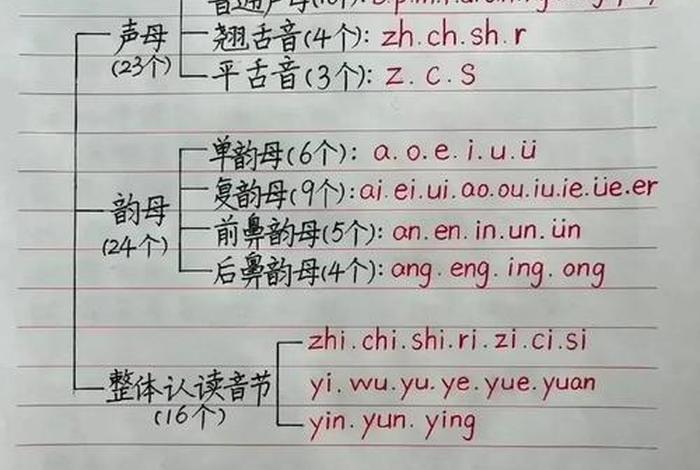 声母
(23个)
翘舌音(4个): zh.ch.sh.r
平舌音(3个): z.c.s
韵母
(24个)
单韵母(6个): a.o.e.i.u.ü
复韵母(9个): ai.ei.ui.ao.ou.iu.ie.üe.er
前鼻韵母(5个): an.en.in.un.ün
后鼻韵母(4个): ang.eng.ing.ong
整体认读音节
(16个)
zhi.chi.shi.ri.zi.ci.si
yi.wu.yu.ye.yue.yuan
yin.yun.ying